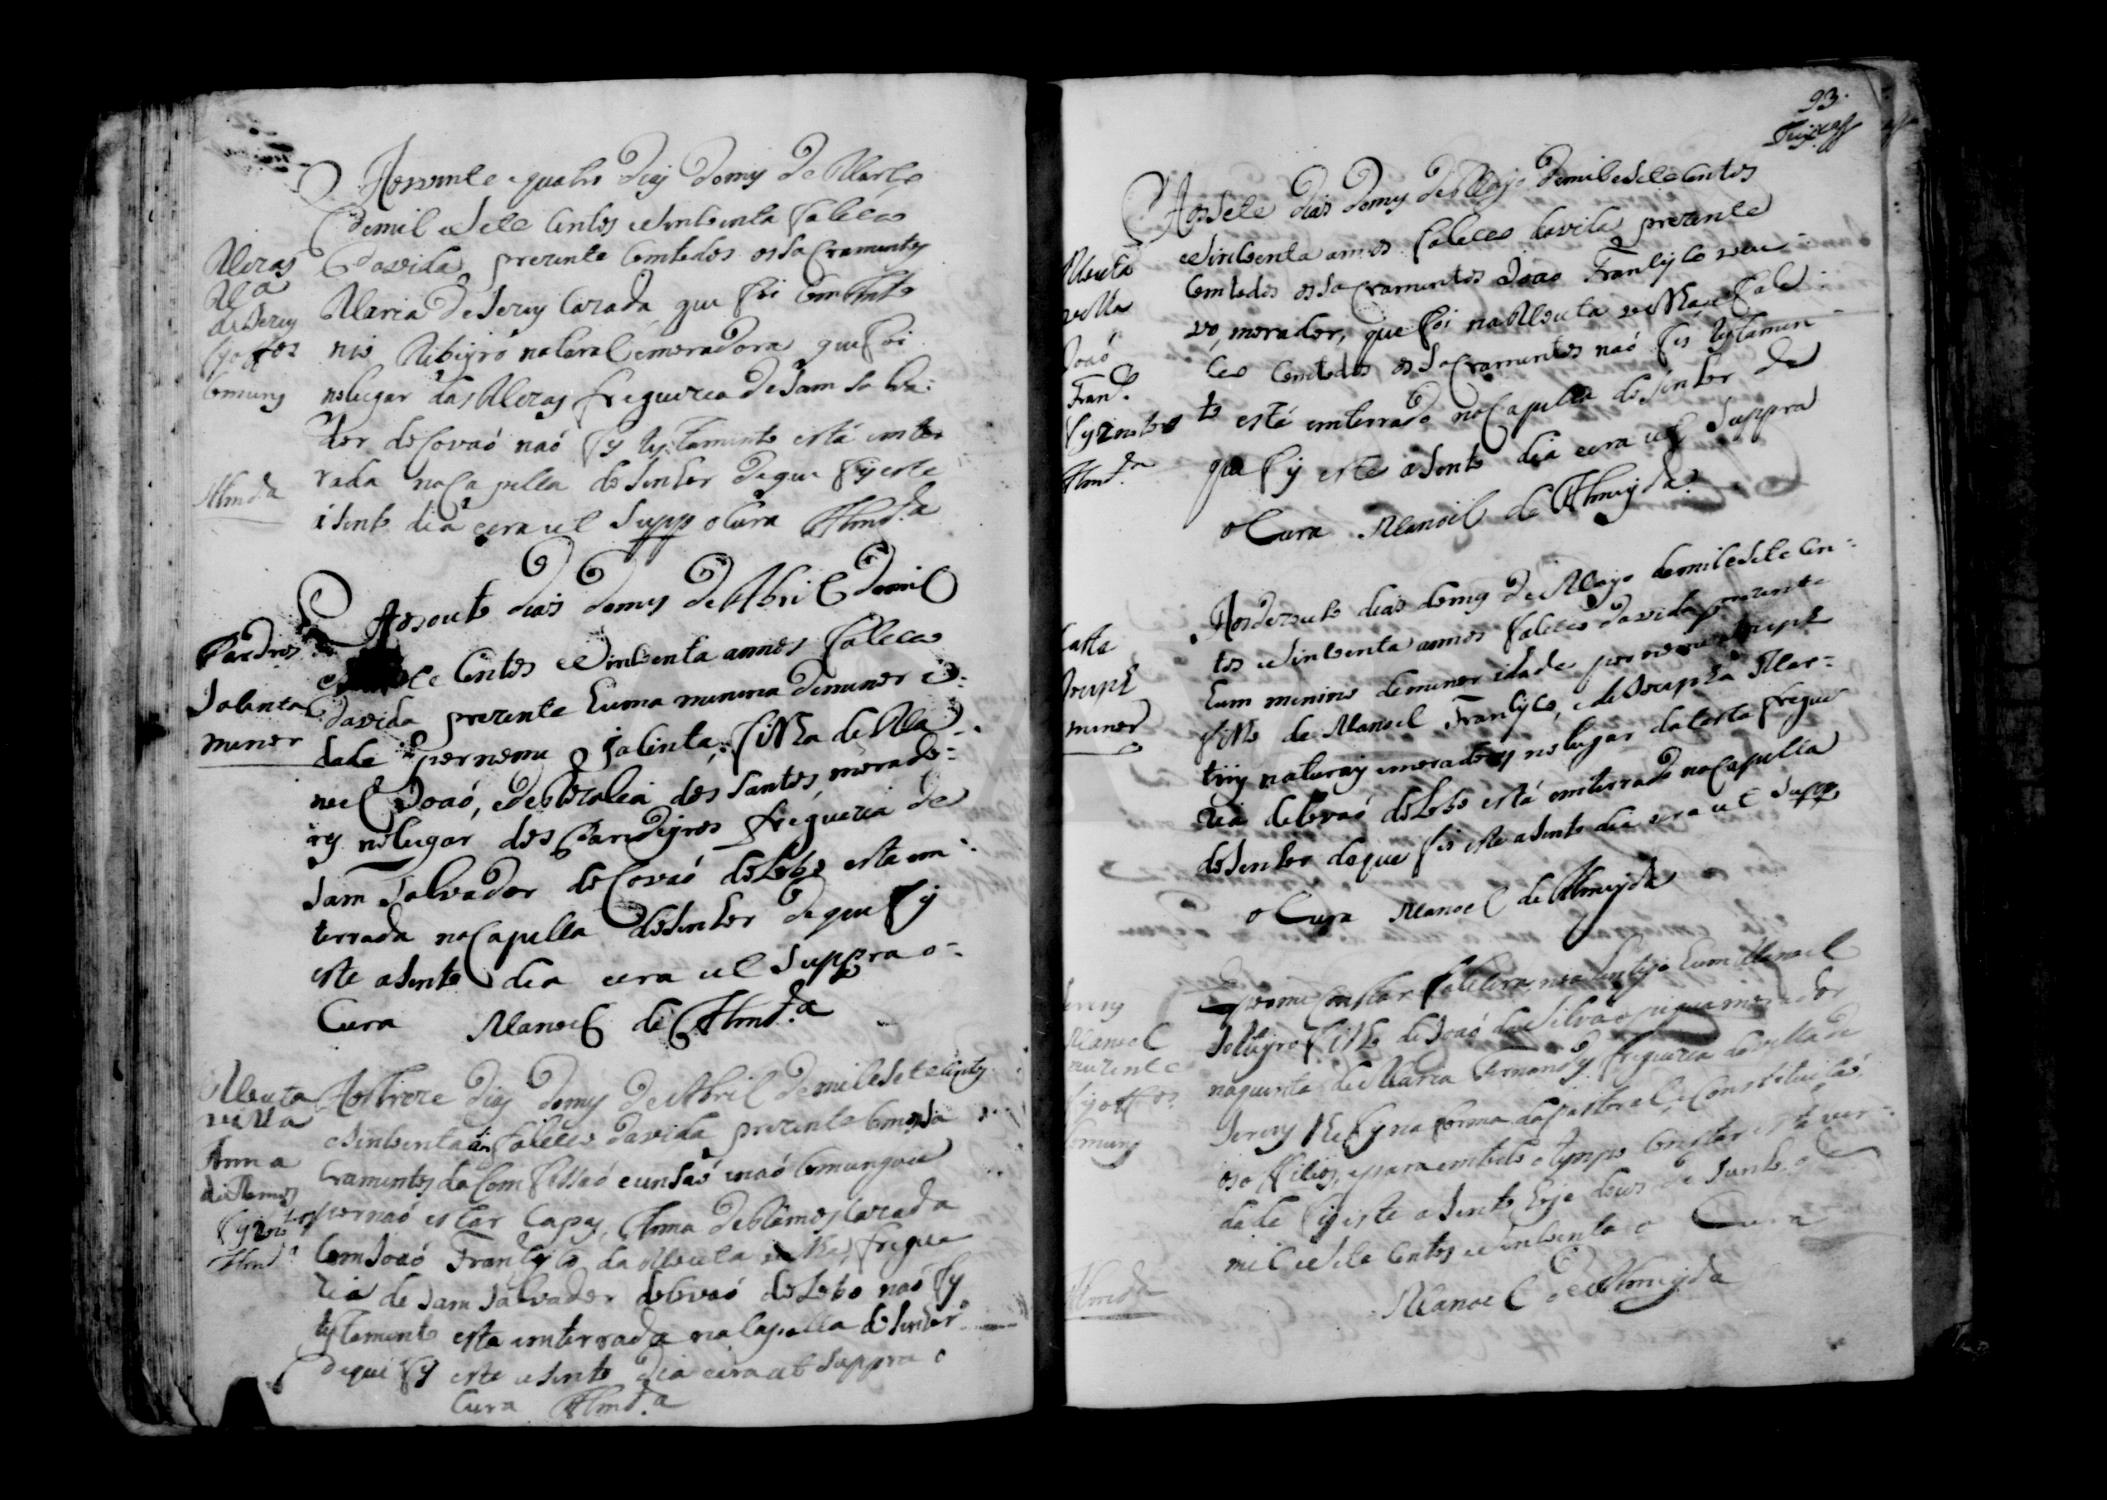 Aos vinte e quatro dias do mes de Março
de mil e sete centos e sincoenta faleceo
da vida prezente com todos os sacramentos
Maria de Jesus cazada que foi com Anto
nio Ribeyro natural e moradora que foi
no lugar das Meras freguezia de Sam Salva:
dor do Covaó naó fes testamento está enter
rada na Capella do Senhor de que fis este
asento dia e era ut supp o Cura Almd.ª
Meras
M.ª
de Jesus
comung
Almda
Aos outo dias do mes de Abril de mil
e sete centos e sincoenta annos faleceo
da vida prezente huma menina de menor i:
dade por nome Jasinta, filha de Ma
noel Joaó, e de Maria dos Santos, morado:
res no lugar dos Pardieyros freguezia de
Sam Salvador do Covaó do Lobo esta en:
terrada na Capella do Senhor de que fis
este asento dia e era ut suppra o:
Cura Manoel de Almd.ª
Pardros
Jasinta
menor
Aos treze dias do mes de Abril de mil e sete centos
e sincoenta faleceo da vida prezente com os sa
cramentos da comfissaó e unsaó e naó comungou
por naó estar capas, Anna de Ramos cazada
com Joaó Francisco da Mouta velha, fregue
zia de Sam Salvador do Covaó do Lobo naó fes
testamento esta enterrada na Capella do Senhor
de que fis este asento dia e era ut suppra o
Cura Almd.ª
Mouta
velha
Anna
de Ramos
Almd.ª
93.
Aos sete dias do mes de Mayo de mil e sete centos
e sincoenta annos faleceo da vida prezente
com todos os sacramentos Joaó Francisco veu:
vo, morador, que foi na Mouta velha, e fale:
ceo com todos os sacramentos naó fes testamen:
to está enterrado na Capella do Senhor de
que fis este asento dia e era ut suppra
o Cura Manoel de Almeyda.
Mouta
velha
Joaó
Fran.co
Almd.ª
Aos dezouto dias do mes de Mayo de mil e sete cen:
tos e sincoenta annos faleceo da vida prezente
hum menino de menor idade por nome Jozeph
filho de Manoel Francisco, e de Jozepha Mar:
tins naturais e moradores no lugar da freguezia
zia do Covaó do Lobo está enterrado na Capella
do Senhor de que fis este asento dia e era ut supp
o Cura Manoel de Almeyda
Jozeph
menor
por me constar falecera no Alentejo hum Manoel
solteyro filho de Joaó da Silva morador
na quinta de Maria Fernandes freguezia da villa de
na forma da pastoral e Constituiçaó
os officios, e para em todo o tempo constar esta ver:
dade fis este asento hoje de Junho de
mil e sete centos e sincoenta o Cura
Manoel de Almeyda
Manoel
auzente
comung
Almeda